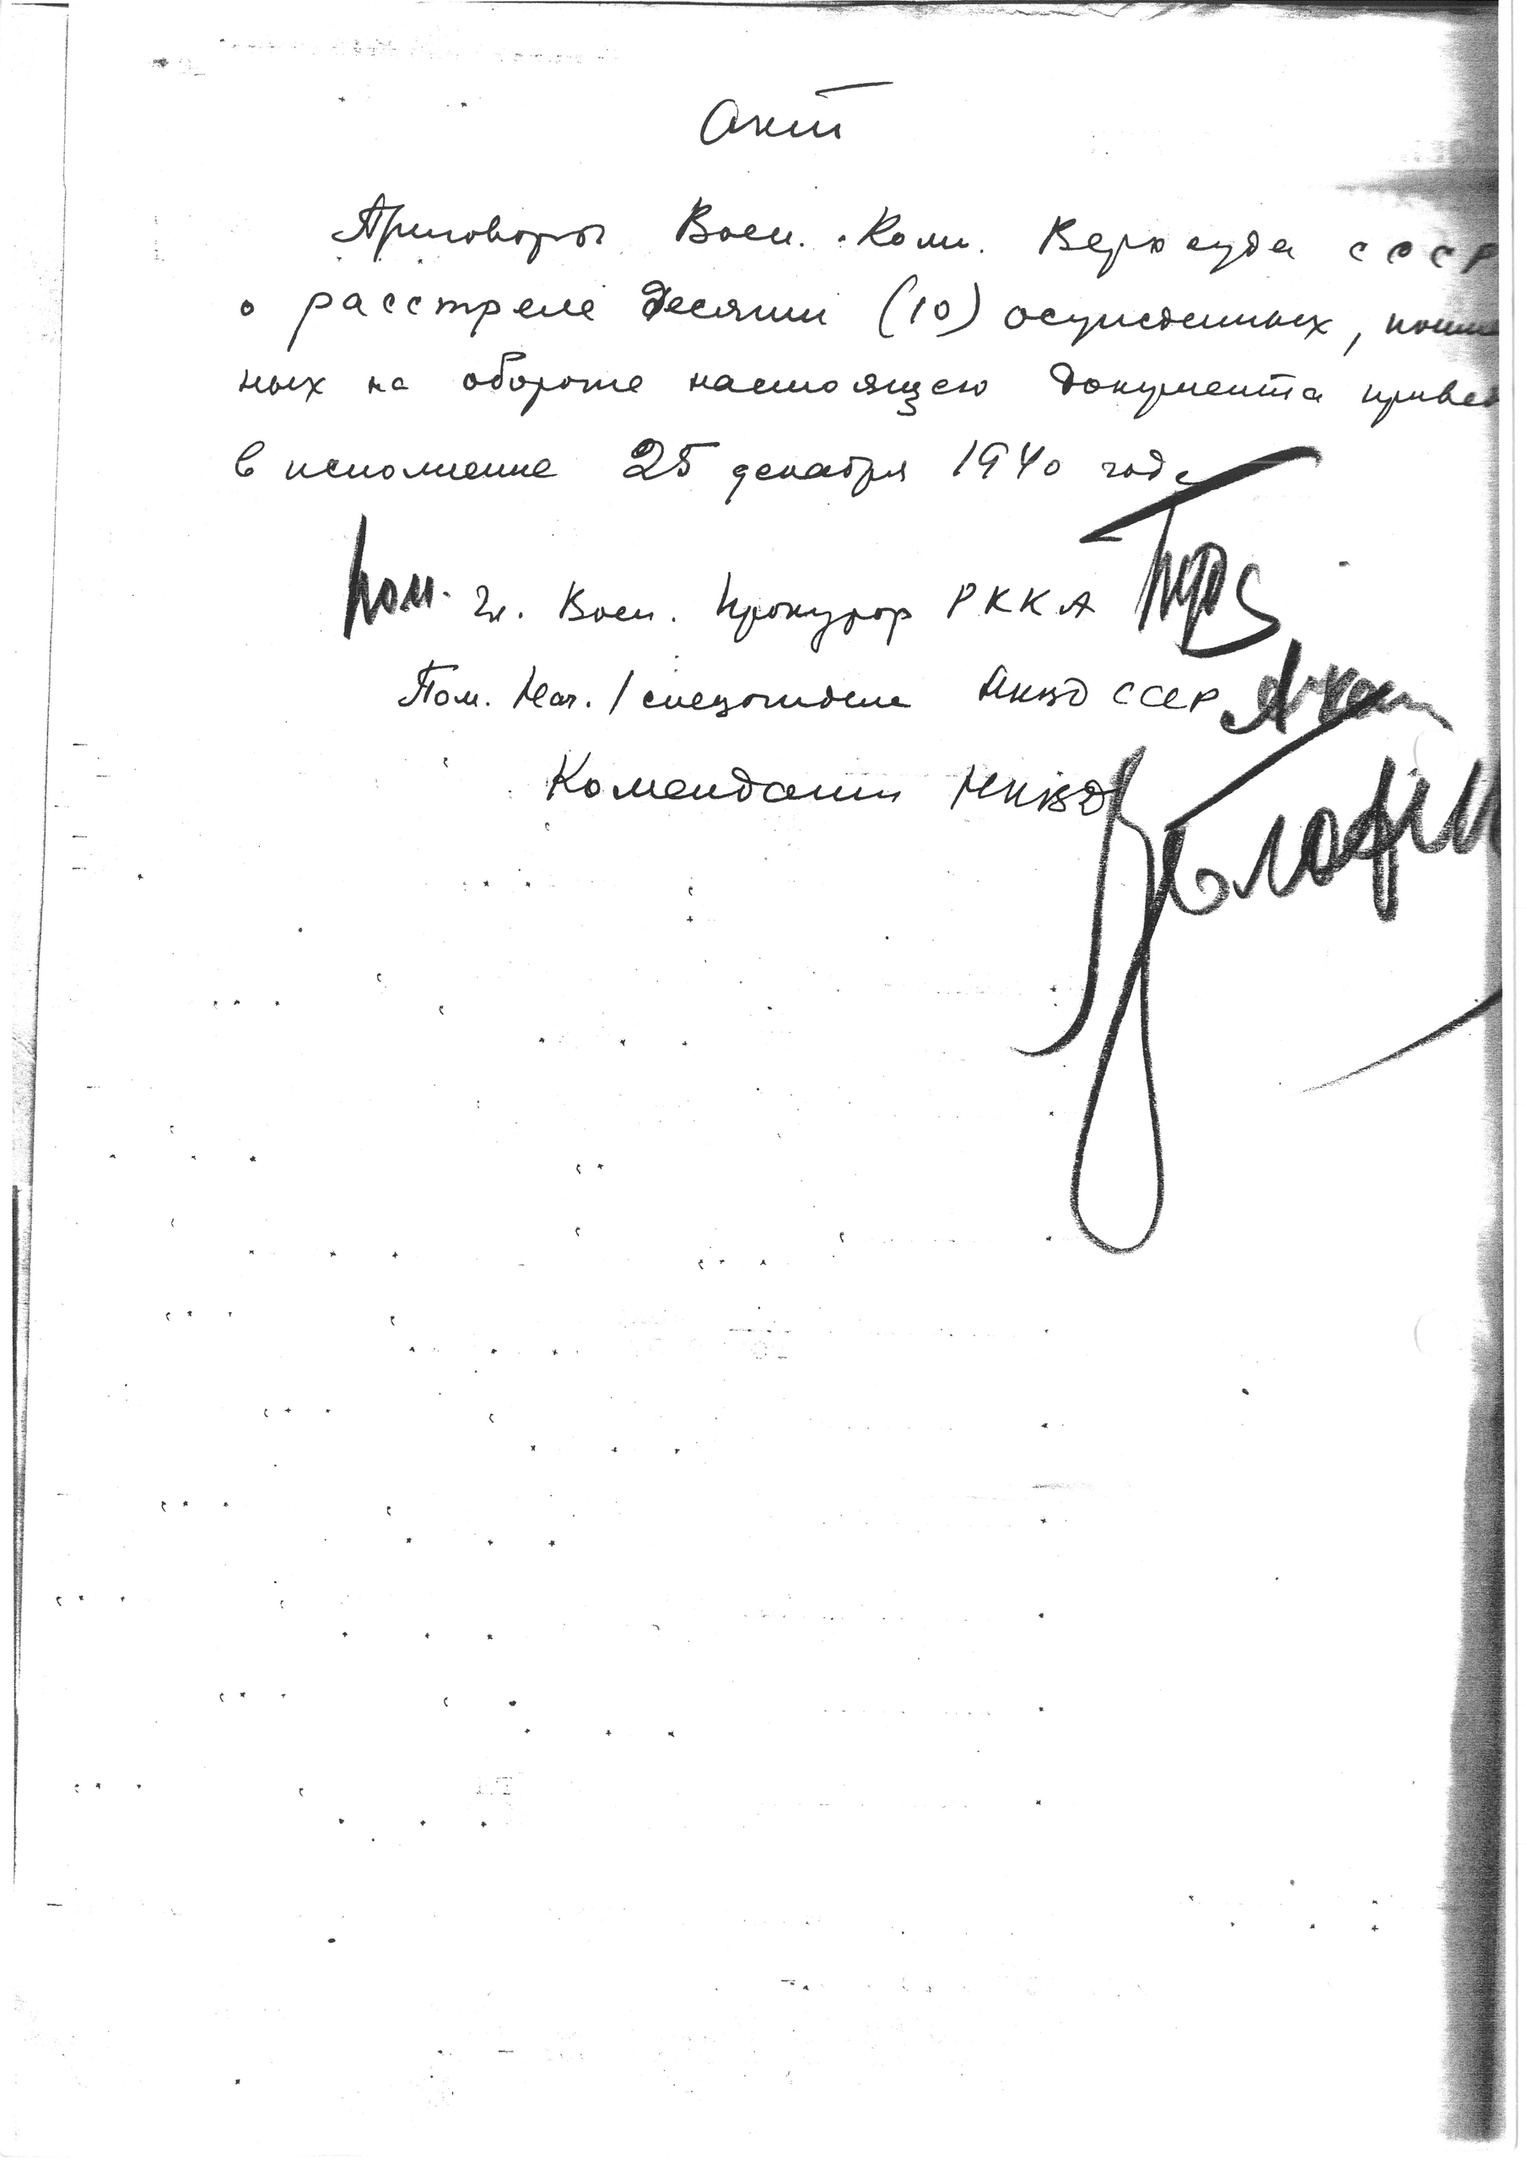 Акт
Приговоры Воен. Колл. Верхсуда СССР
о расстреле десяти (10) осужденных,
ных на обороте настоящего документа
в исполнение 25 декабря 1940 года
Пом. Гл. Воен. Прокурор РККА
Пом. Нач. 1 спецотдела НКВД СССР
Комендант НКВД